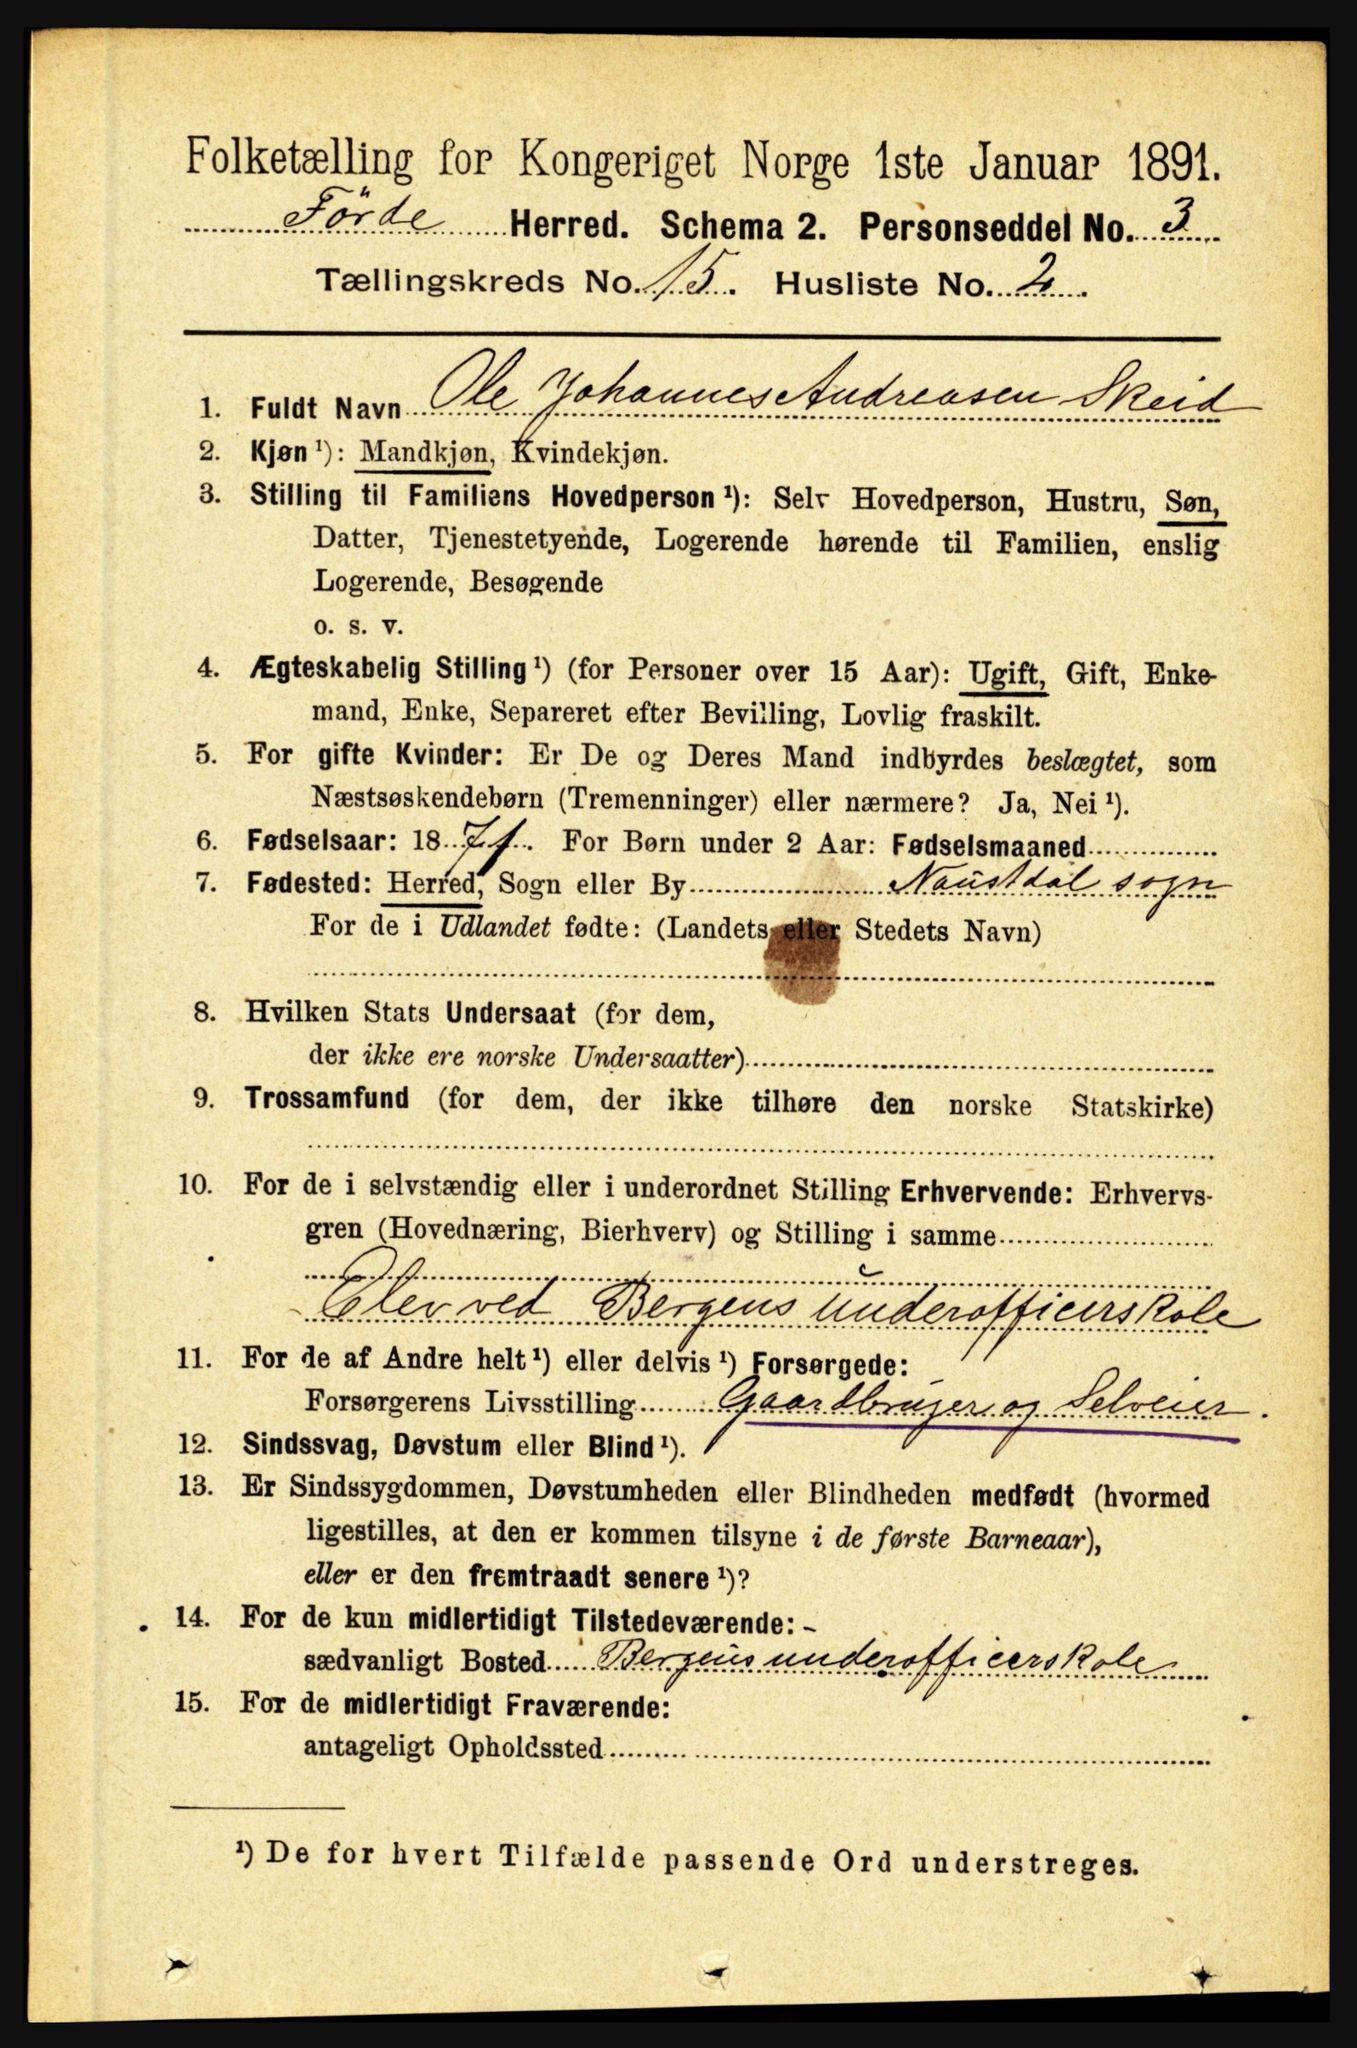 Folketælling for Kongeriget Norge 1ste Januar 1891.
Förde Herred. Schema 2. Personseddel No. 3
Tællingskreds No. 15. Husliste No. 2.
1. Fuldt Navn Ole Johannes Andreasen Skeid
2. Kjøn ¹): Mandkjøn, Kvindekjøn.
3. Stilling til Familiens Hovedperson ¹): Selv Hovedperson, Hustru, Søn,
Datter, Tjenestetyende, Logerende hørende til Familien, enslig
Logerende, Besøgende
o. s. v.
4. Ægteskabelig Stilling ¹) (for Personer over 15 Aar): Ugift, Gift, Enke-
mand, Enke, Separeret efter Bevilling, Lovlig fraskilt.
5. For gifte Kvinder: Er De og Deres Mand indbyrdes beslægtet, som
Næstsøskendebørn (Tremenninger) eller nærmere? Ja, Nei ¹).
6. Fødselsaar: 1871. For Børn under 2 Aar: Fødselsmaaned
7. Fødested: Herred, Sogn eller By Naustdal sogn
For de i Udlandet fødte: (Landets eller Stedets Navn)
8. Hvilken Stats Undersaat (for dem,
der ikke ere norske Undersaatter)
9. Trossamfund (for dem, der ikke tilhøre den norske Statskirke)
10. For de i selvstændig eller i underordnet Stilling Erhvervende: Erhvervs-
gren (Hovednæring, Bierhverv) og Stilling i samme
Elev ved Bergens underofficerskole
11. For de af Andre helt ¹) eller delvis ¹) Forsørgede:
Forsørgerens Livsstilling Gaardbruger og Selveier.
12. Sindssvag, Døvstum eller Blind ¹).
13. Er Sindssygdommen, Døvstumheden eller Blindheden medfødt (hvormed
ligestilles, at den er kommen tilsyne i de første Barneaar),
eller er den fremtraadt senere ¹)?
14. For de kun midlertidigt Tilstedeværende: -
sædvanligt Bosted Bergens underofficerskole
15. For de midlertidigt Fraværende:
antageligt Opholdssted
¹) De for hvert Tilfælde passende Ord understreges.